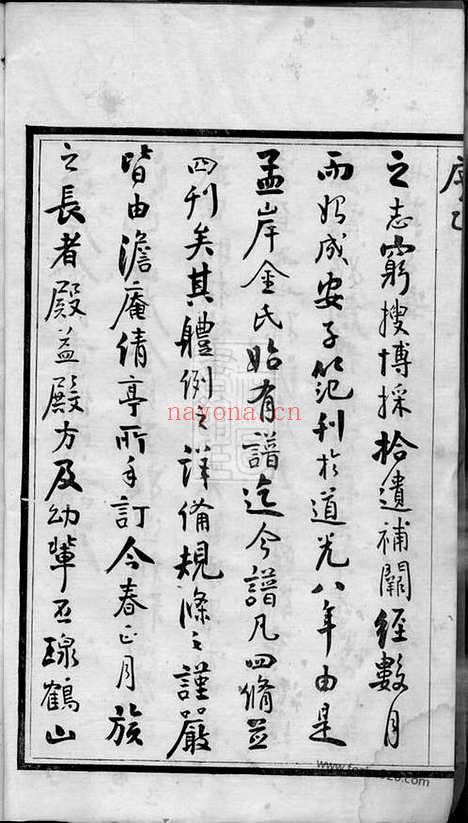 之志窮搜博採拾遺補闕經數月
而始成安子範刊於道光八年由是
孟岸金氏始有譜迄今譜凡四脩並
四刊矣其體例之詳備規條之謹嚴
皆由澹庵倩亭所手訂今春正月族
之長者殿益殿方及幼輩五璟鶴山
nayona.cn